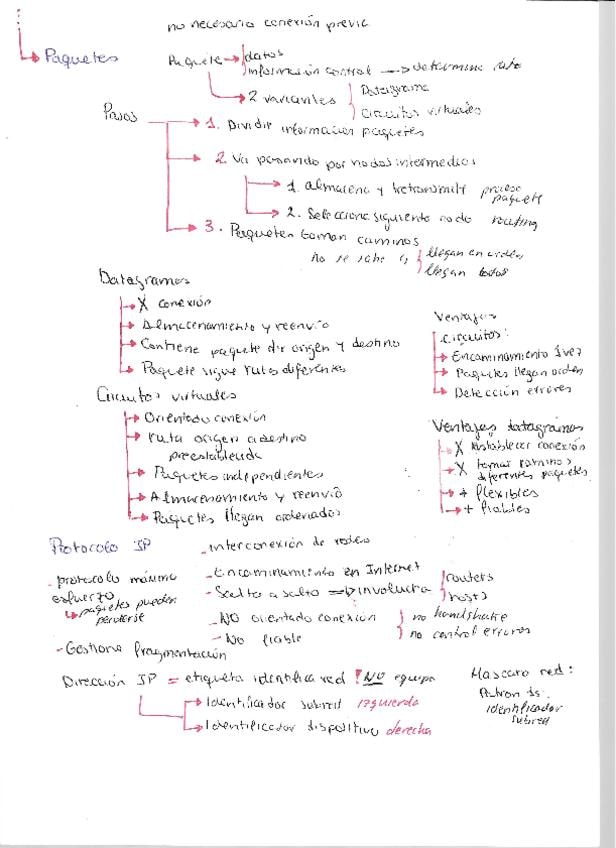 no necesario conexión previa
Paquetes
Paquete → datos
información control → determina ruta
2 variantes
Datagrama
Circuitos virtuales
Pasos
1. Dividir información paquetes
2. Va pasando por nodos intermedios
1. almacena y retransmitir proceso paquete
2. Selecciona siguiente nodo routing
3. Paquetes toman caminos
no se sabe si
llegan en orden
llegan todos
Datagramas
X conexión
Almacenamiento y reenvío
Contiene paquete dir origen y destino
Paquete sigue rutas diferentes
Ventajas
circuitos:
Encaminamiento 1 vez
Paquetes llegan orden
Detección errores
Circuitos virtuales
Orientado conexión
ruta origen a destino
preestablecida
Paquetes independientes
Almacenamiento y reenvío
Paquetes llegan ordenados
Ventajas datagramas
X establecer conexión
X tomar caminos
diferentes paquetes
+ flexibles
+ fiables
Protocolo IP
- interconexión de redes
- protocolo máximo
esfuerzo
paquetes pueden
perderse
- Encaminamiento en Internet
- Salto a salto ⇒ involucra
routers
hosts
- NO orientado conexión
- No fiable
no handshake
no control errores
- Gestiona fragmentación
Dirección IP = etiqueta identifica red ! NO equipo
Identificador subred izquierda
Identificador dispositivo derecha
Mascara red:
Patron 1s:
identificador
subred